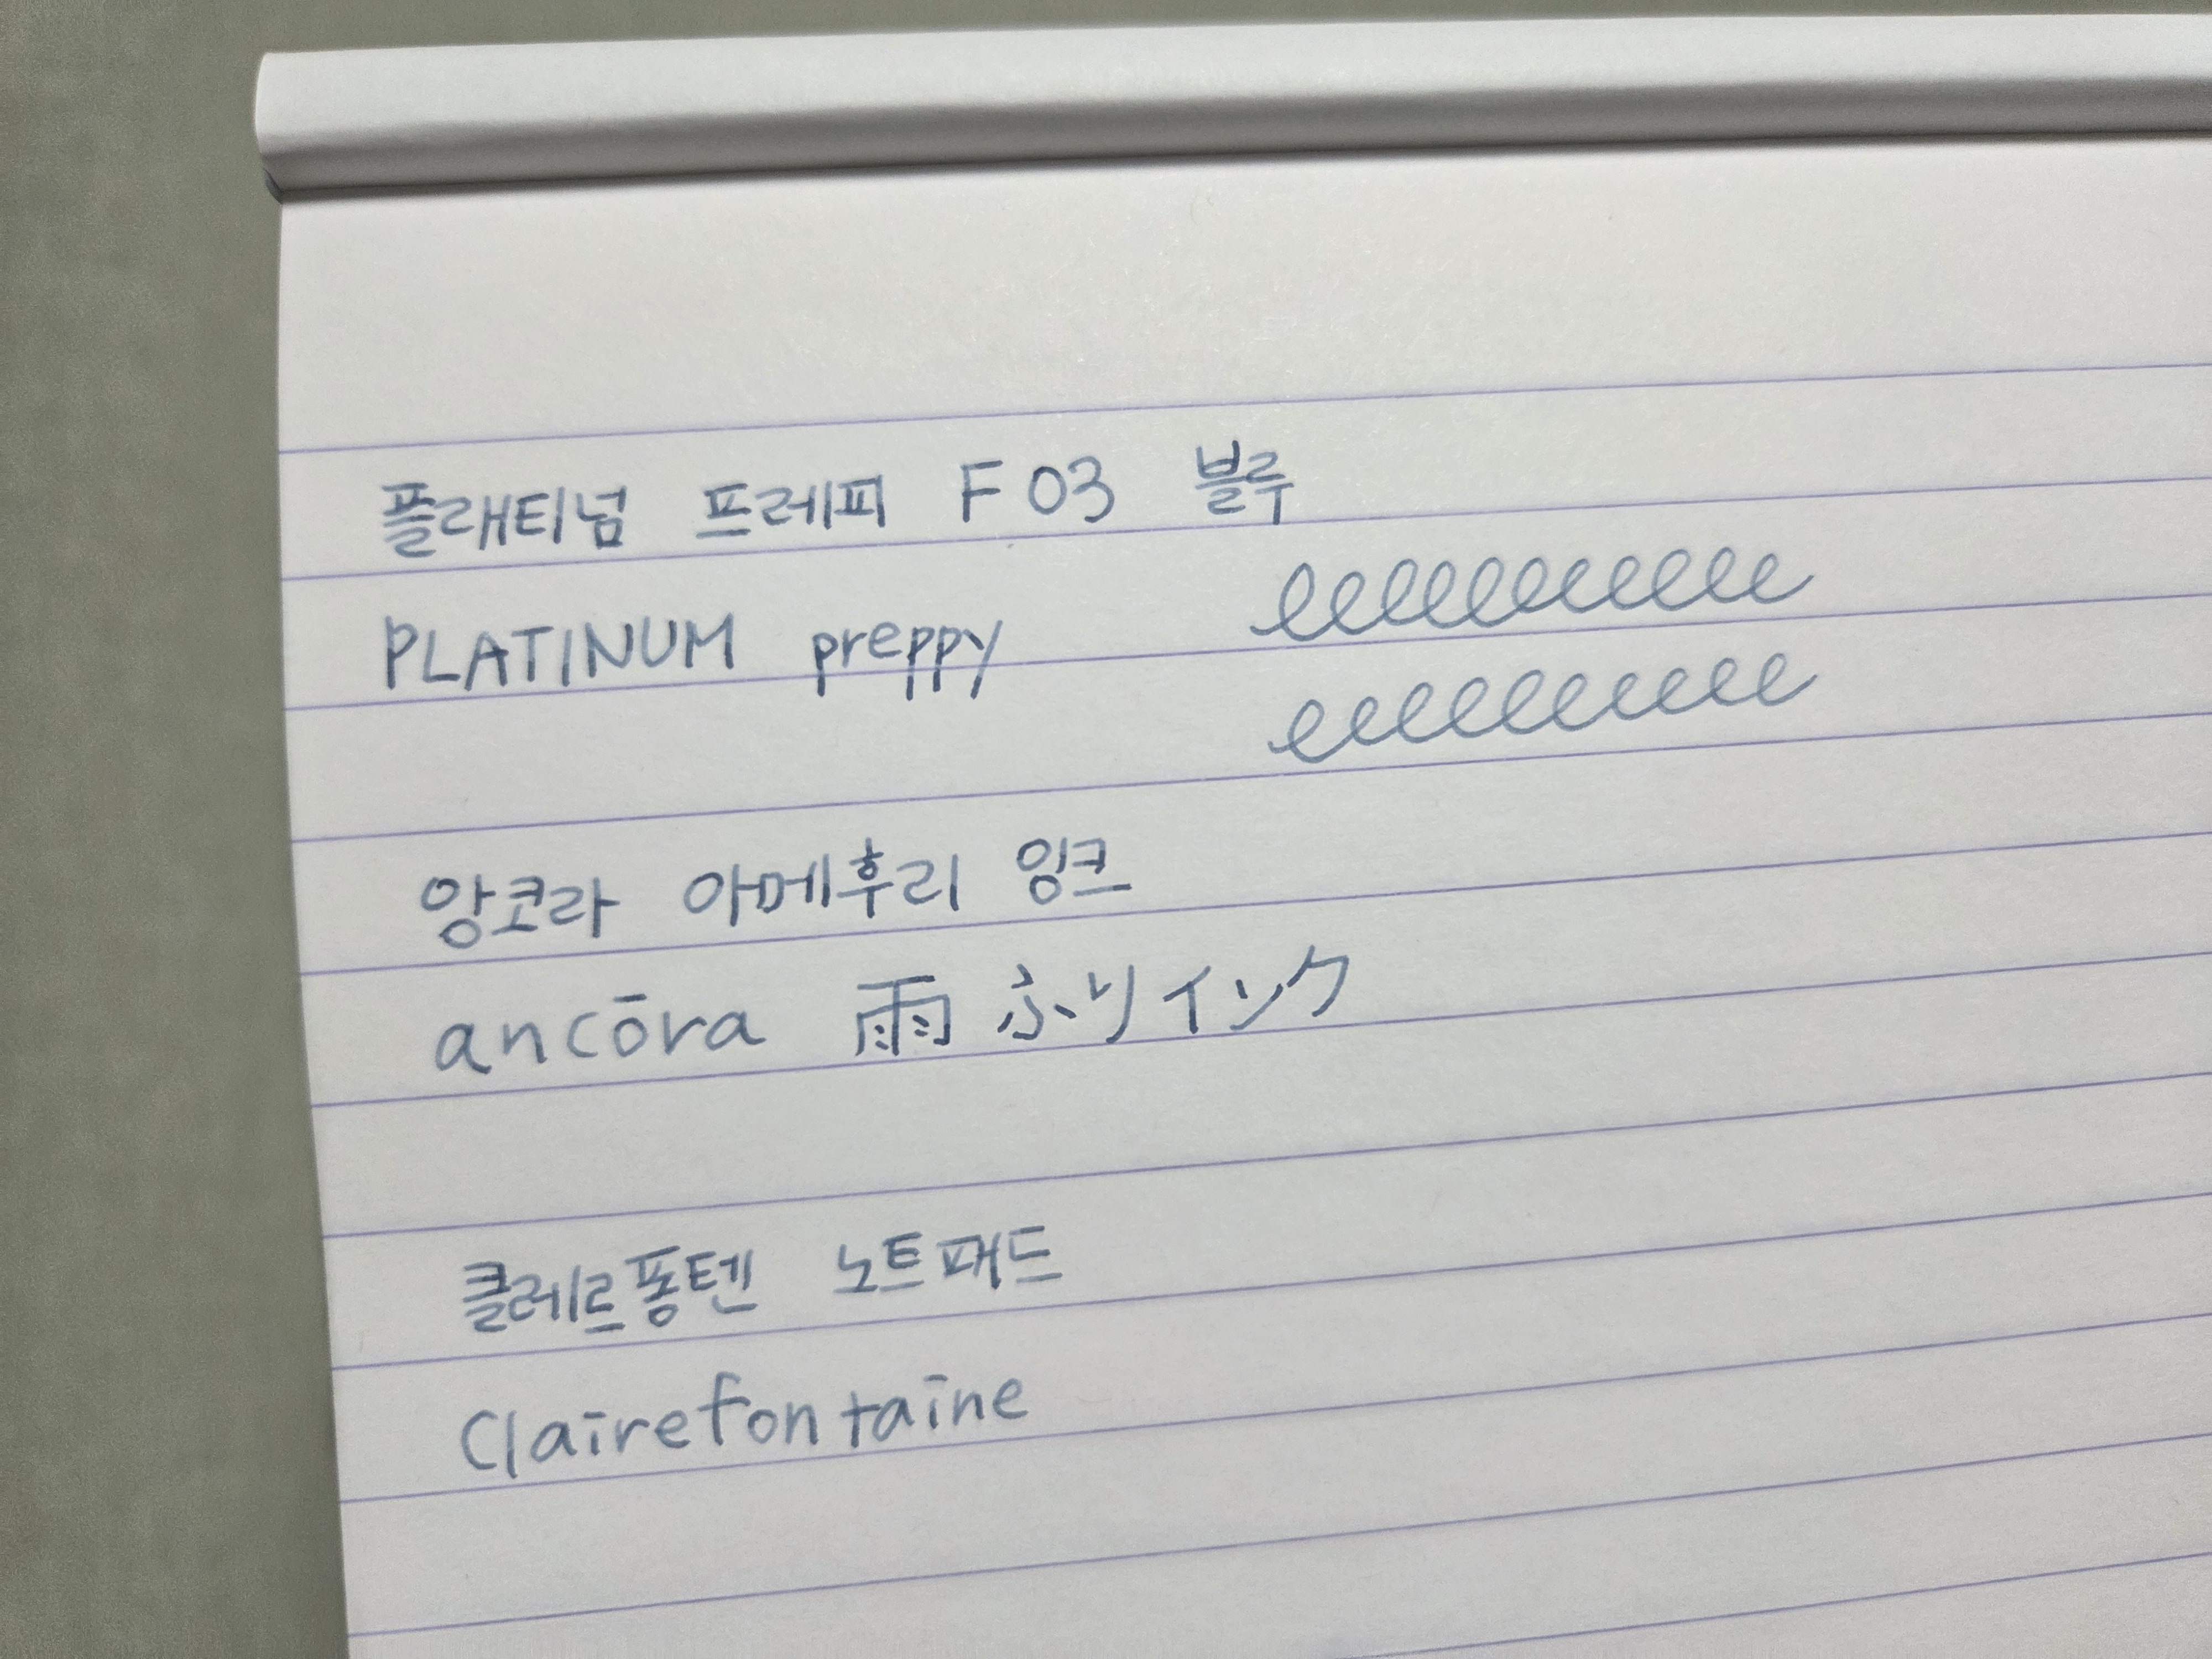 플래티넘 프레피 F 03 블루
PLATINUM preppy
앙코라 아메후리 잉크
ancōra 雨ふりインク
클레르퐁텐 노트패드
Clairefontaine